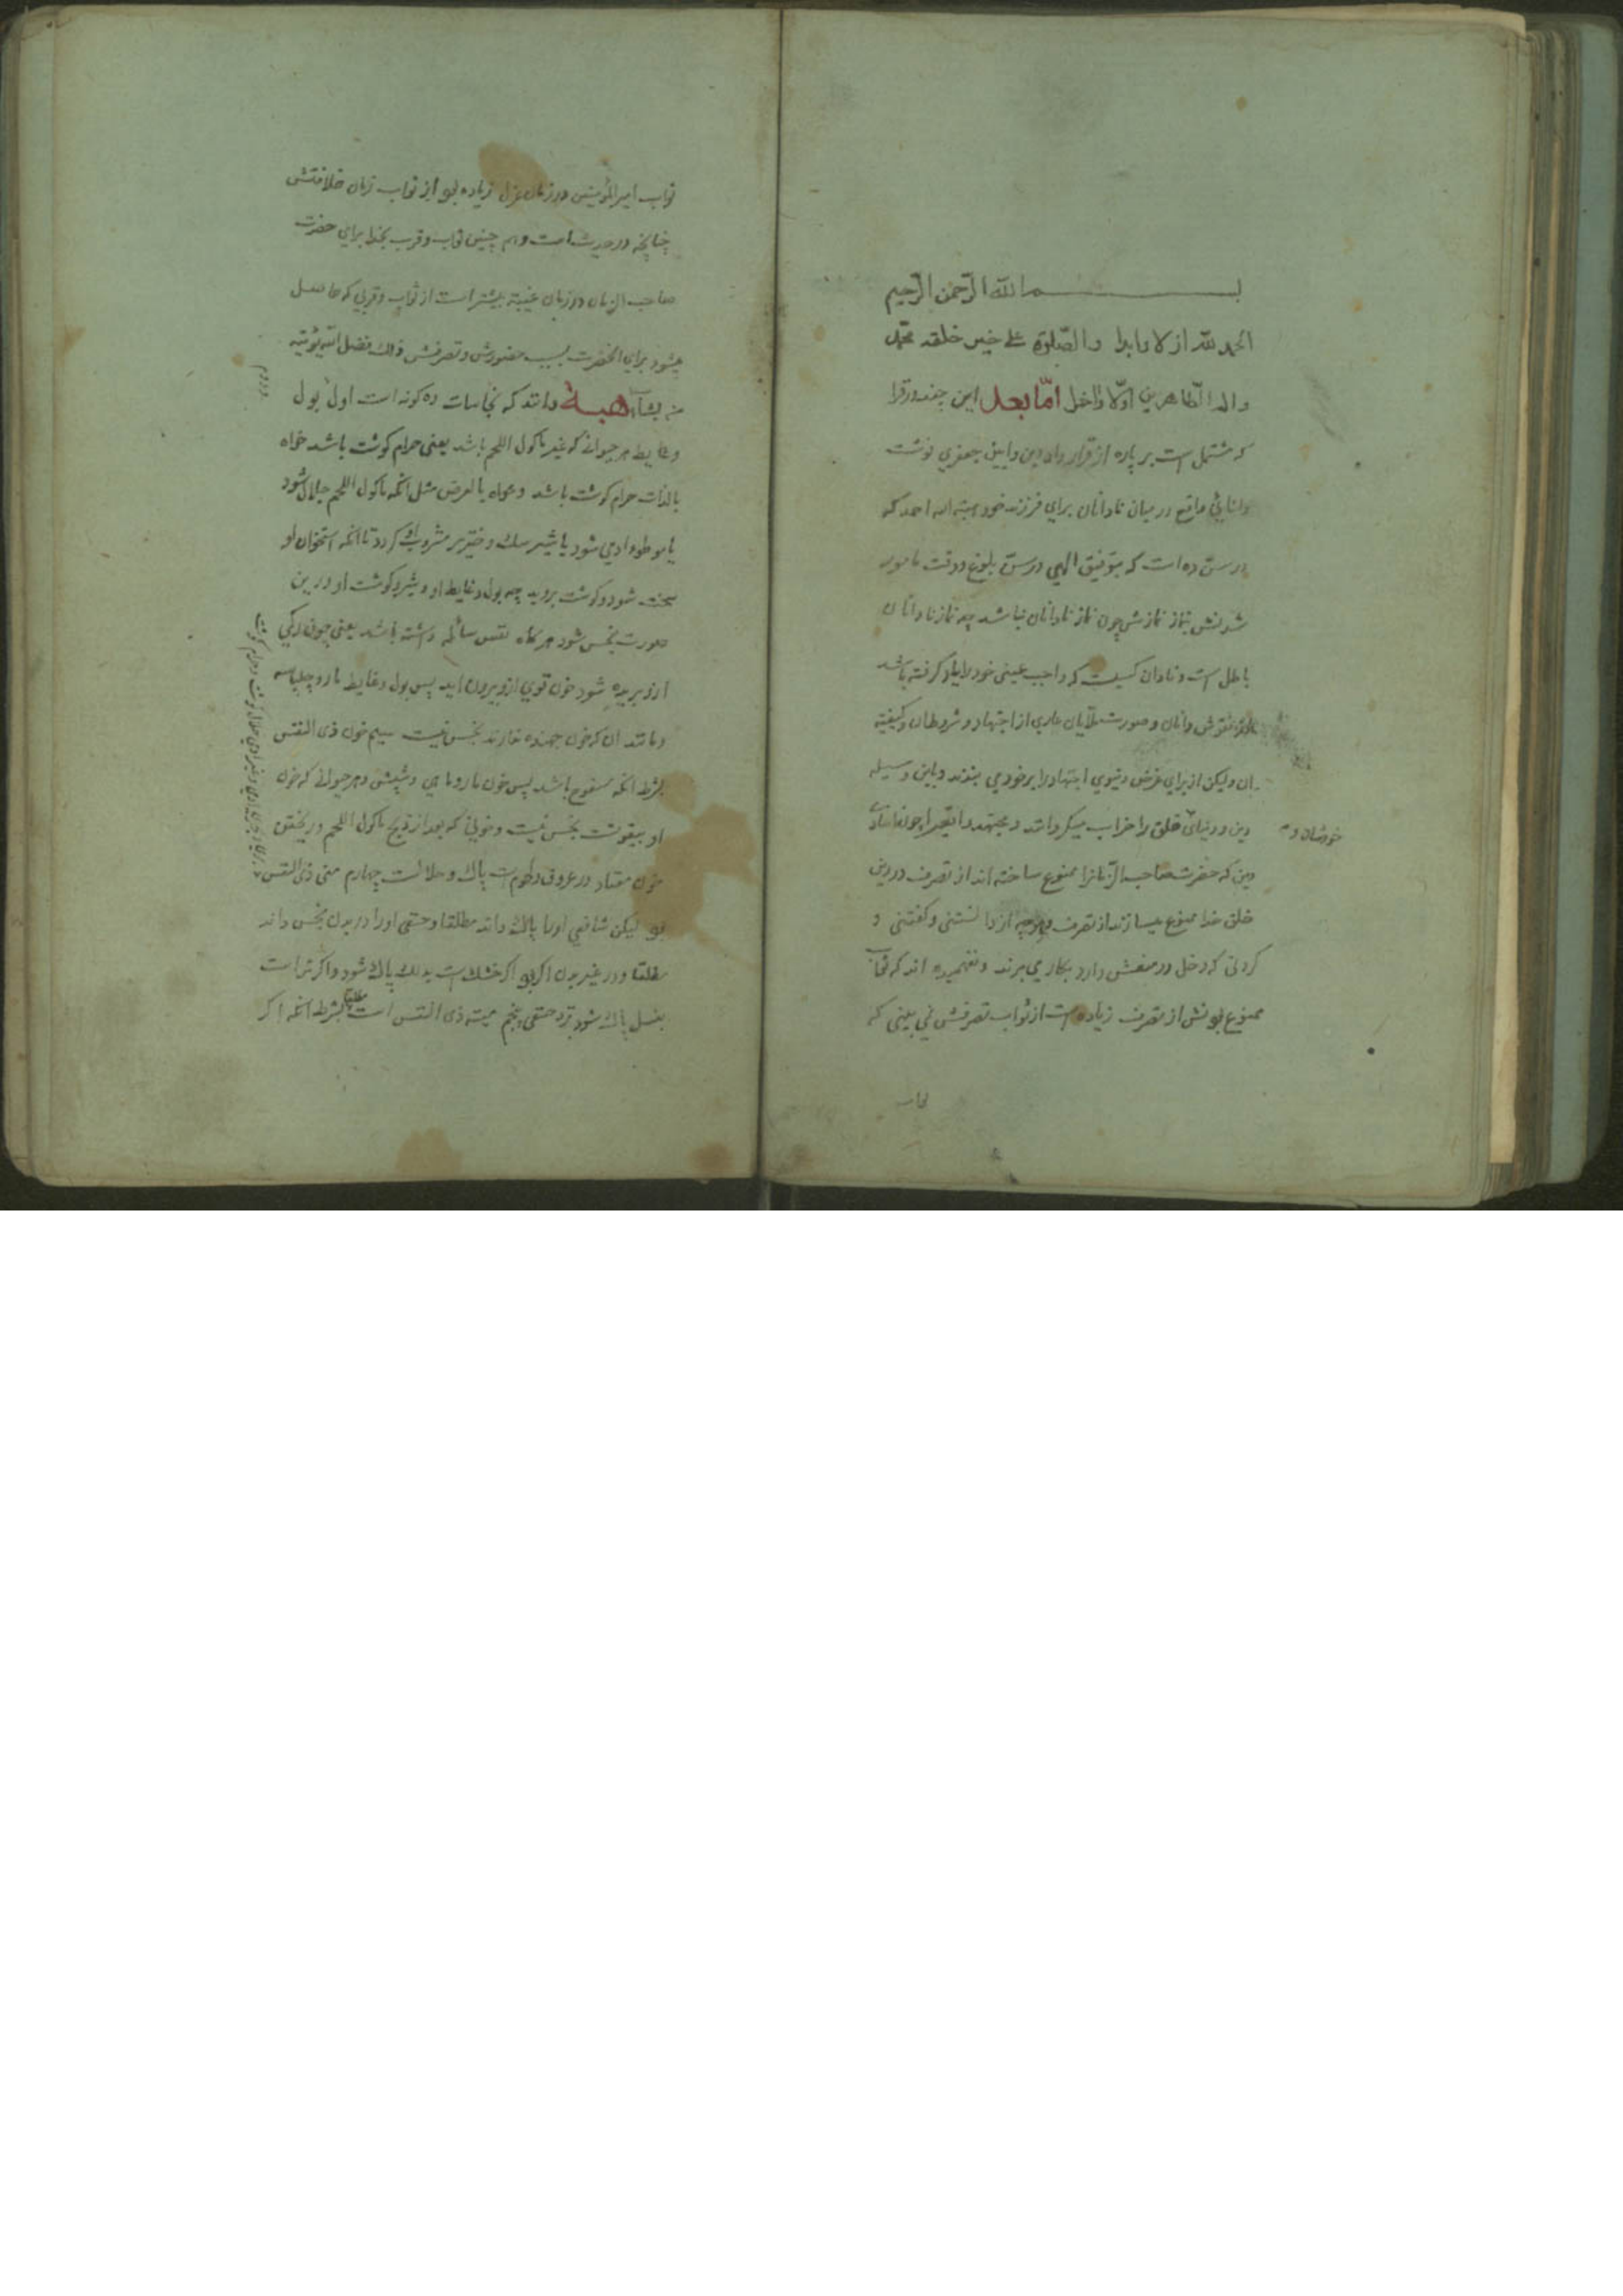 بسم الله الرحمن الرحیم
الحمد لله ازلا وابدا والصلوة علی خیر خلقه محمد
واله الطاهرین اولا واخرا امّا بعد این چند ورقرا
که مشتمل است بر پاره از قرار داد دین وایین جعفری نوشت
دانائی واقع در میان نادانان برای فرزند خود هبة الله احمد که
در سن ده است که بتوفیق الهی در سن بلوغ ووقت مامور
شدنش بنماز نمازش چون نماز نادانان نباشد چه نماز نادانان
باطل است ونادان کسیست که واجب عینی خود را یاد نگرفته باشد
نقوش دانان وصورت ملایان عاری از اجتهاد وشروطان وکیفیته
ان ولیکن از برای غرض دنیوی اجتهاد را بر خود می بندند وباین وسیله
دین ودنیای خلق را خراب میکردانند ومجتهد واقعیرا چون
خودشان و
دین که حضرت صاحب الزمانرا ممنوع ساخته اند از تصرف در دین
خلق خدا ممنوع میسازند از تصرف وهرچه از دانستنی وکفتنی و
کردنی که دخل در منعش دارد بکار می برند ونفهمیده اند که ثواب
ممنوع بودنش از تصرف زیاده است از ثواب تصرفش نمی بینی که
ثواب
ثواب امیر المؤمنین در زمان عزل زیاده بود از ثواب زمان خلافتش
چنانچه در حدیث است وهم چنین ثواب وقرب بخدا برای حضرت
صاحب الزمان در زمان غیبته بیشتر است از ثواب وقربی که حاصل
میشود برای انحضرت بسبب حضورش وتصرفش ذلك فضل الله یؤتیه
من یشاء هبة دانند که نجاسات ده کونه است اول بول
ودویم
وغایط هر حیوانی که غیر ماکول اللحم باشد یعنی حرام کوشت باشد خواه
بالذات حرام کوشت باشد وخواه بالعرض مثل انکه ماکول اللحم جلال شود
یا موطوء ادمی شود یا شیر سك وخنزیر مشروب او کردد تا انکه استخوان او
سخت شود وکوشت بروید چه بول وغایط او وشیر وکوشت او در این
صورت نجس شود هرکاه نفس سائله داشته باشد یعنی چون رکی
ازو بریده شود خون قوی ازو بیرون اید پس بول وغایط مار وچلپاسه
ومانند ان که خون جهنده ندارند نجس نیست سیم خون ذی النفس
بشرط انکه مسفوح باشد پس خون مار وماهی وشپش وهر حیوانی که خون
او بیقوتست نجس نیست وخونی که بعد از ذبح ماکول اللحم وریختن
خون معتاد در عروق ولحوم است پاك وحلالست چهارم منی ذی النفس
بود لیکن شافعی اورا پاك داند مطلقا وحنفی اورا در بدن نجس داند
مطلقا ودر غیر بدن اکر بود اکر خشك است بدلك پاك شود واکر تر است
بغسل پاك شود نزد حنفی پنجم میته ذی النفس است مطلقا بشرط انکه اکر